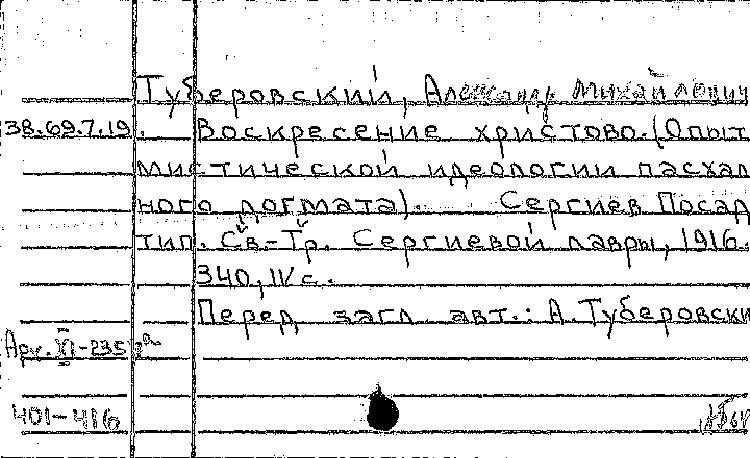 Туберовский, Александр Михайлович
38.69.7.19. Воскресение христово. (Опыт
мистической идеологии пасхал
ного догмата). Сергиев Посад
тип. Св.-Тр. Сергиевой лавры, 1916.
340, IV с.
Перед загл. авт.: А. Туберовски
401-416